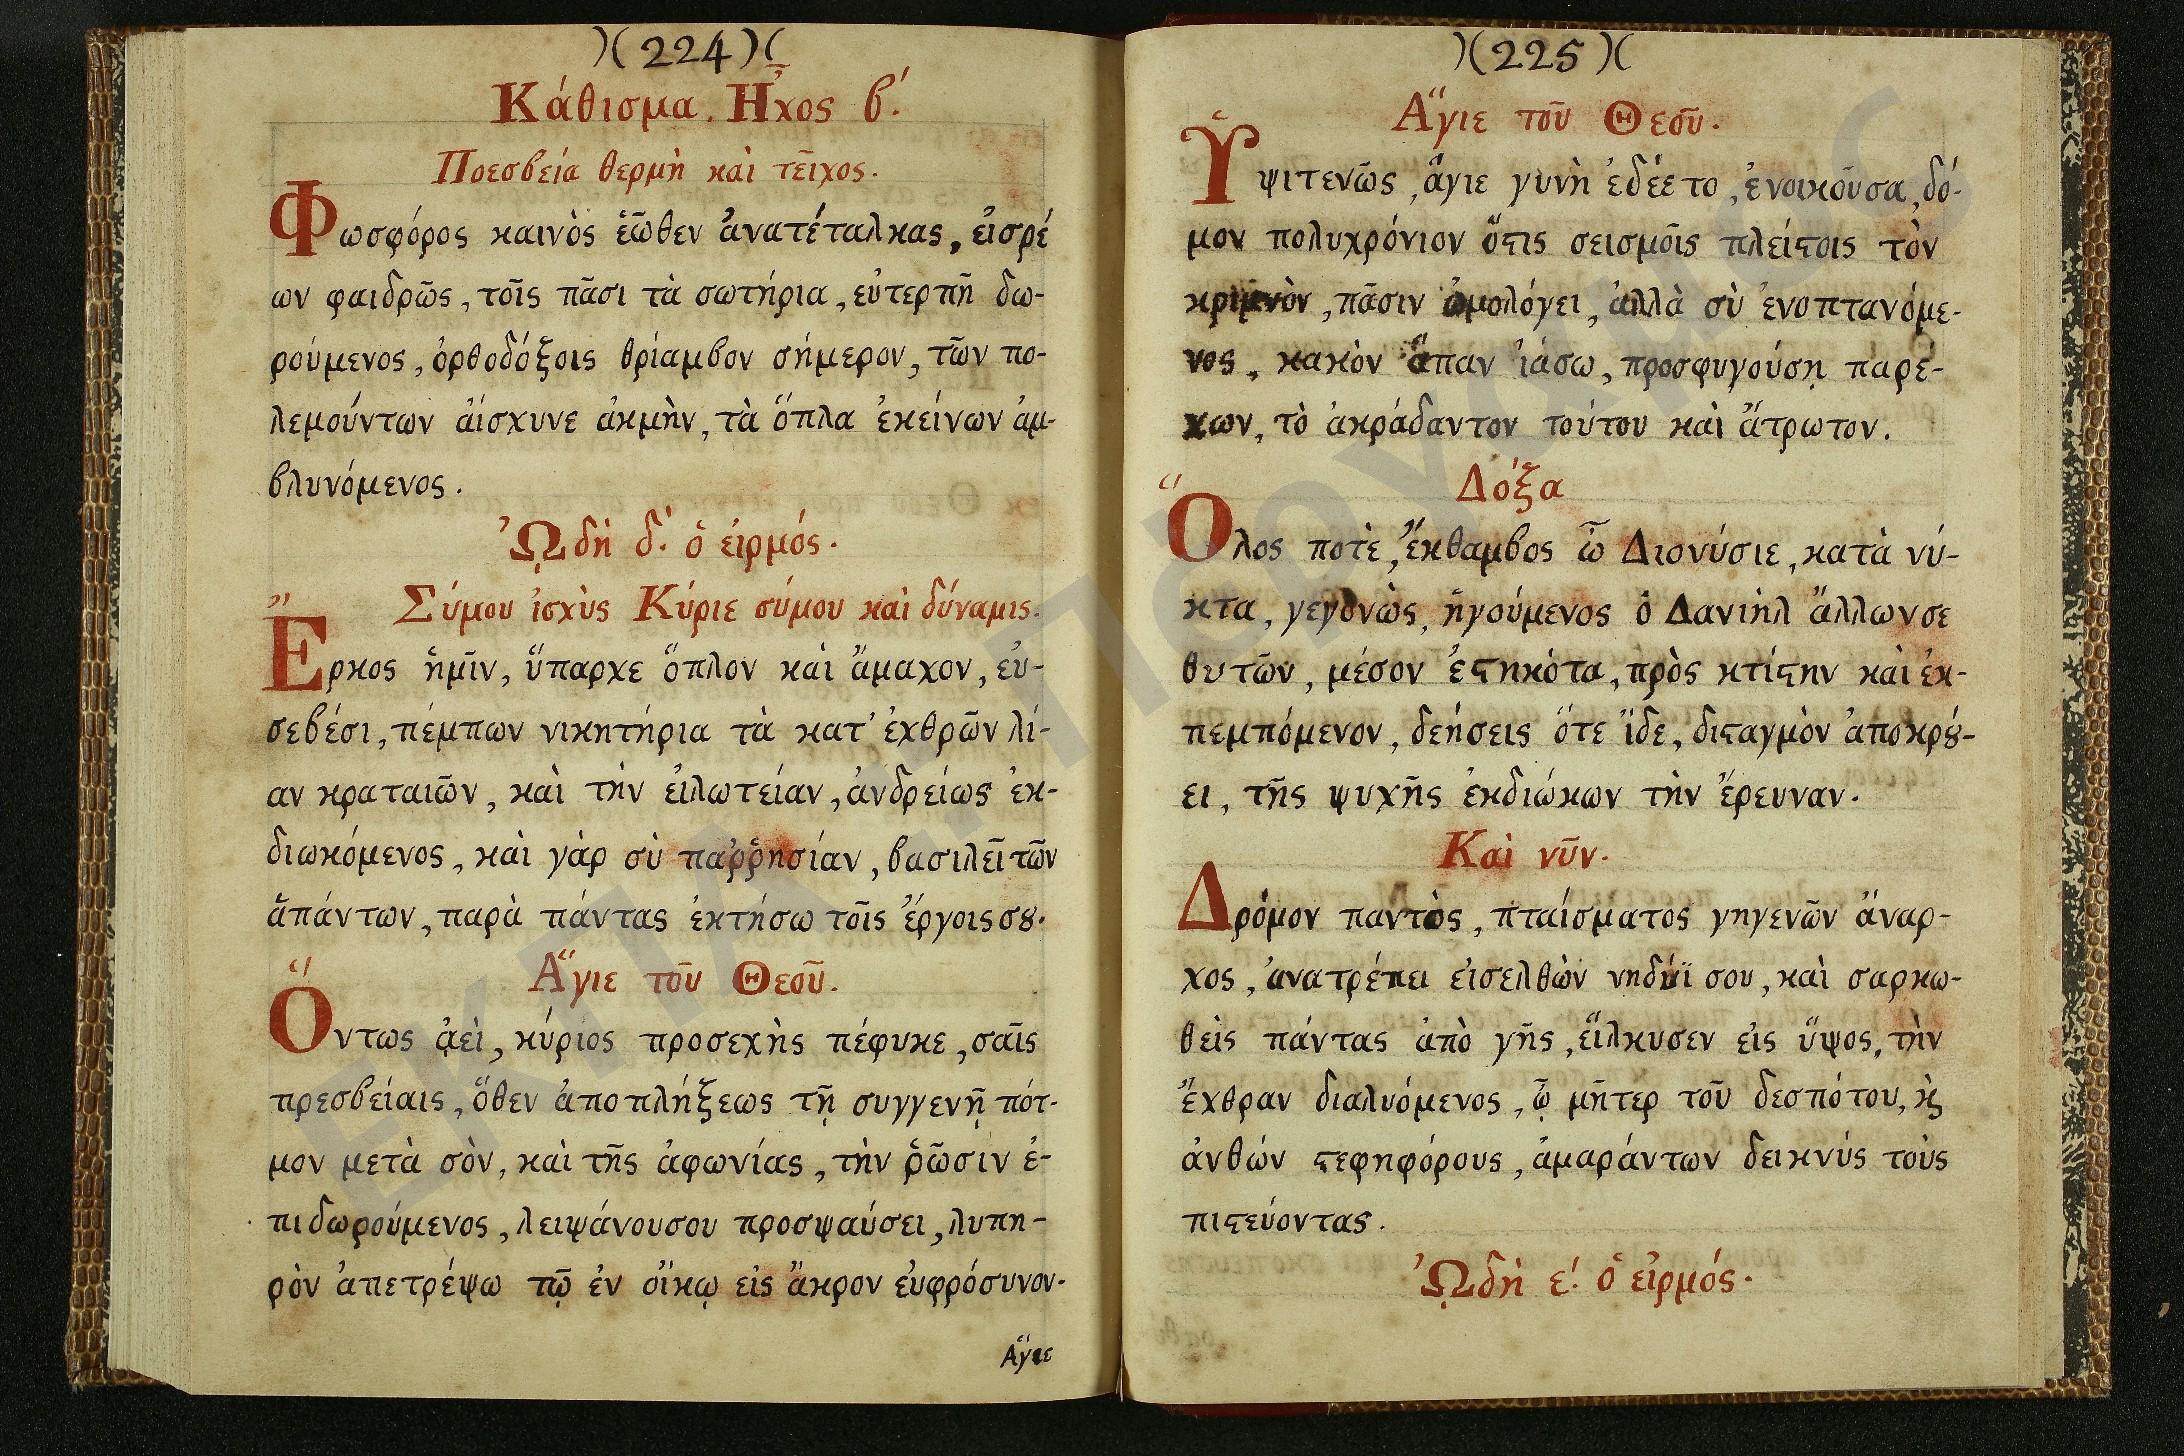 )(224)(
Κάθισμα. Ἦχος β΄.
Πρεσβεία θερμὴ καὶ τεῖχος.
Φωσφόρος καινὸς ἑῶθεν ἀνατέταλκας, εἰσρέ
ων φαιδρῶς, τοῖς πᾶσι τὰ σωτήρια, εὐτερπῆ δω-
ρούμενος, ὀρθοδόξοις θρίαμβον σήμερον, τῶν πο-
λεμούντων ἀίσχυνε ἀκμὴν, τὰ ὅπλα ἐκείνων ἀμ-
βλυνόμενος.
ᾨδὴ δ΄. ὁ εἱρμός.
Σύμου ἰσχὺς Κύριε σύμου καὶ δύναμις.
Ἕρκος ἡμῖν, ὕπαρχε ὅπλον καὶ ἄμαχον, εὐ-
σεβέσι, πέμπων νικητήρια τὰ κατ' ἐχθρῶν λί-
αν κραταιῶν, καὶ τὴν εἱλωτείαν, ἀνδρείως ἐκ-
διωκόμενος, καὶ γὰρ σὺ παῤῥησίαν, βασιλεῖ τῶν
ἁπάντων, παρὰ πάντας ἐκτήσω τοῖς ἔργοις σȣ.
Ἅγιε τοῦ Θεοῦ.
Ὄντως ἀεὶ, κύριος προσεχὴς πέφυκε, σαῖς
πρεσβείαις, ὅθεν ἀποπλήξεως τῇ συγγενῇ πότ-
μον μετὰ σὸν, καὶ τῆς ἀφωνίας, τὴν ῥῶσιν ἐ-
πιδωρούμενος, λειψάνουσου προσψαύσει, λυπη-
ρὸν ἀπετρέψω τῷ ἐν οἴκῳ εἰς ἄκρον εὐφρόσυνον.
Ἅγιε
)(225)(
Ἅγιε τοῦ Θεοῦ.
Ὑψιτενῶς, ἅγιε γυνὴ ἐδέετο, ἐνοικοῦσα, δό-
μον πολυχρόνιον ὅϛις σεισμοῖς πλείϛοις τὸν
κριμνὸν, πᾶσιν ὡμολόγει, ἀλλὰ σὺ ἐνοπτανόμε-
νος, κακὸν ἅπαν ἰάσω, προσφυγούσῃ παρέ-
χων, τὸ ἀκράδαντον τούτου καὶ ἄτρωτον.
Δόξα
Ὅλος ποτὲ, ἔκθαμβος ὦ Διονύσιε, κατὰ νύ-
κτα, γεγονὼς, ἡγούμενος ὁ Δανιὴλ ἄλλωνσε
θυτῶν, μέσον ἐϛηκότα, πρὸς κτίϛην καὶ ἐκ-
πεμπόμενον, δεήσεις ὅτε ἴδε, διϛαγμὸν ἀποκρȣ́-
ει, τῆς ψυχῆς ἐκδιώκων τὴν ἔρευναν.
Καὶ νῦν.
Δρόμον παντὸς, πταίσματος γηγενῶν ἄναρ-
χος, ἀνατρέπει εἰσελθὼν νηδύϊ σου, καὶ σαρκω-
θεὶς πάντας ἀπὸ γῆς, εἵλκυσεν εἰς ὕψος, τὴν
ἔχθραν διαλυόμενος, ᾧ μῆτερ τοῦ δεσπότου, ϗ
ἀνθῶν ϛεφηφόρους, ἀμαράντων δεικνύς τοὺς
πιϛεύοντας.
ᾨδὴ ε΄. ὁ εἱρμός.